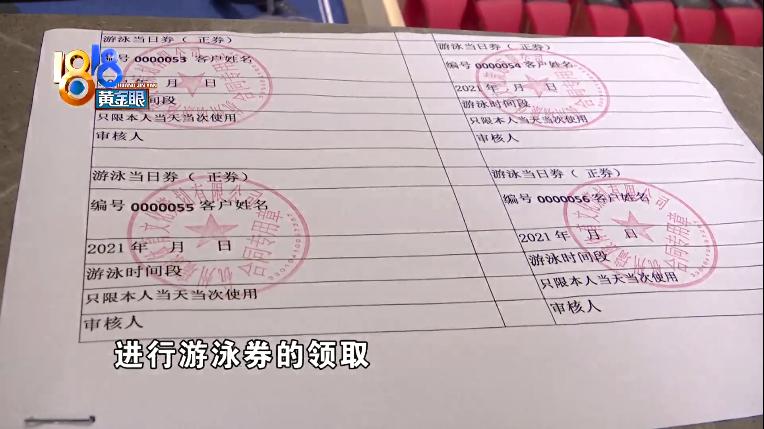 1818
黄金眼
游泳当日券（ 正券）
编号 0000053 客户姓名
年 月 日
游泳时间段
只限本人当天当次使用
审核人
游泳当日券（ 正券）
编号 0000054 客户姓名
2021 年 月 日
游泳时间段
只限本人当天当次使用
审核人
游泳当日券（ 正券）
编号 0000055 客户姓名
2021 年 月 日
游泳时间段
只限本人当天当次使用
审核人
游泳当日券（ 正券）
编号 0000056 客户姓名
2021 年 月 日
游泳时间段
只限本人当天当次使用
审核人
合同专用章
合同专用章
进行游泳券的领取